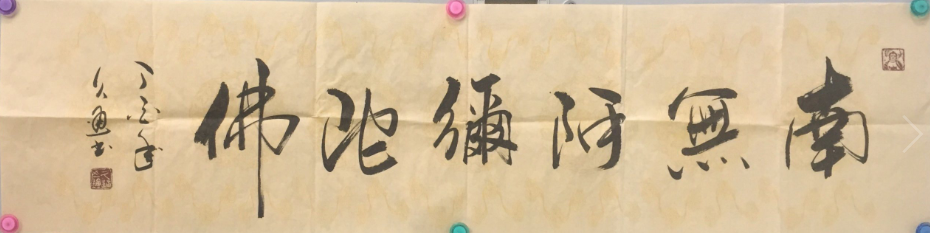 南無阿彌陀佛
丁年
久書